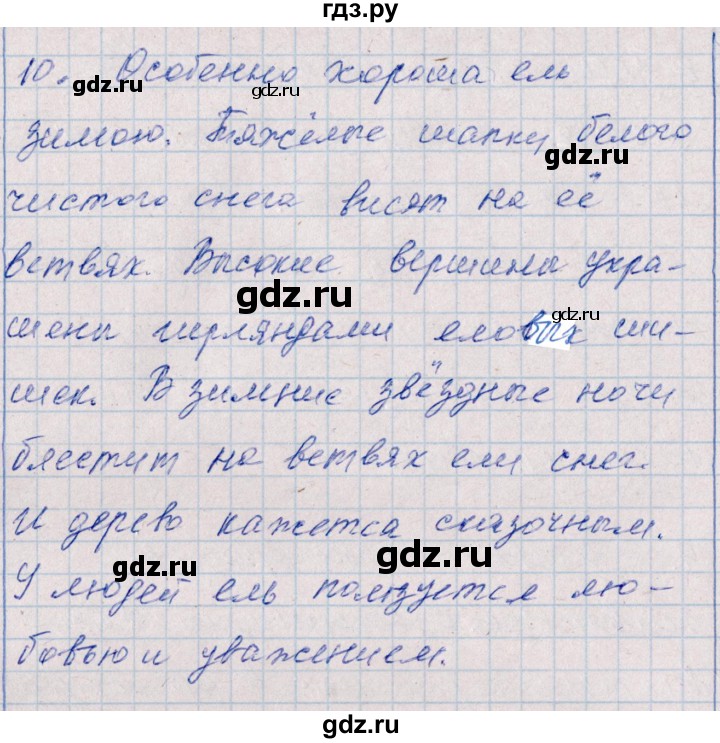 гдз.ру
10. Особенно хороша ель
gdz.ru
gdz.ru
зимою. Тяжёлые шапки белого
gdz.ru
чистого снега висят на её
ветвях. Высокие вершины укра-
gdz.ru
шены гирляндами еловых ши-
gdz.ru
шек. В зимние звёздные ночи
gdz.ru
блестит на ветвях ели снег.
И дерево кажется сказочным.
gdz.ru
gdz.ru
У людей ель пользуется лю-
бовью и уважением.
gdz.ru
gdz.ru